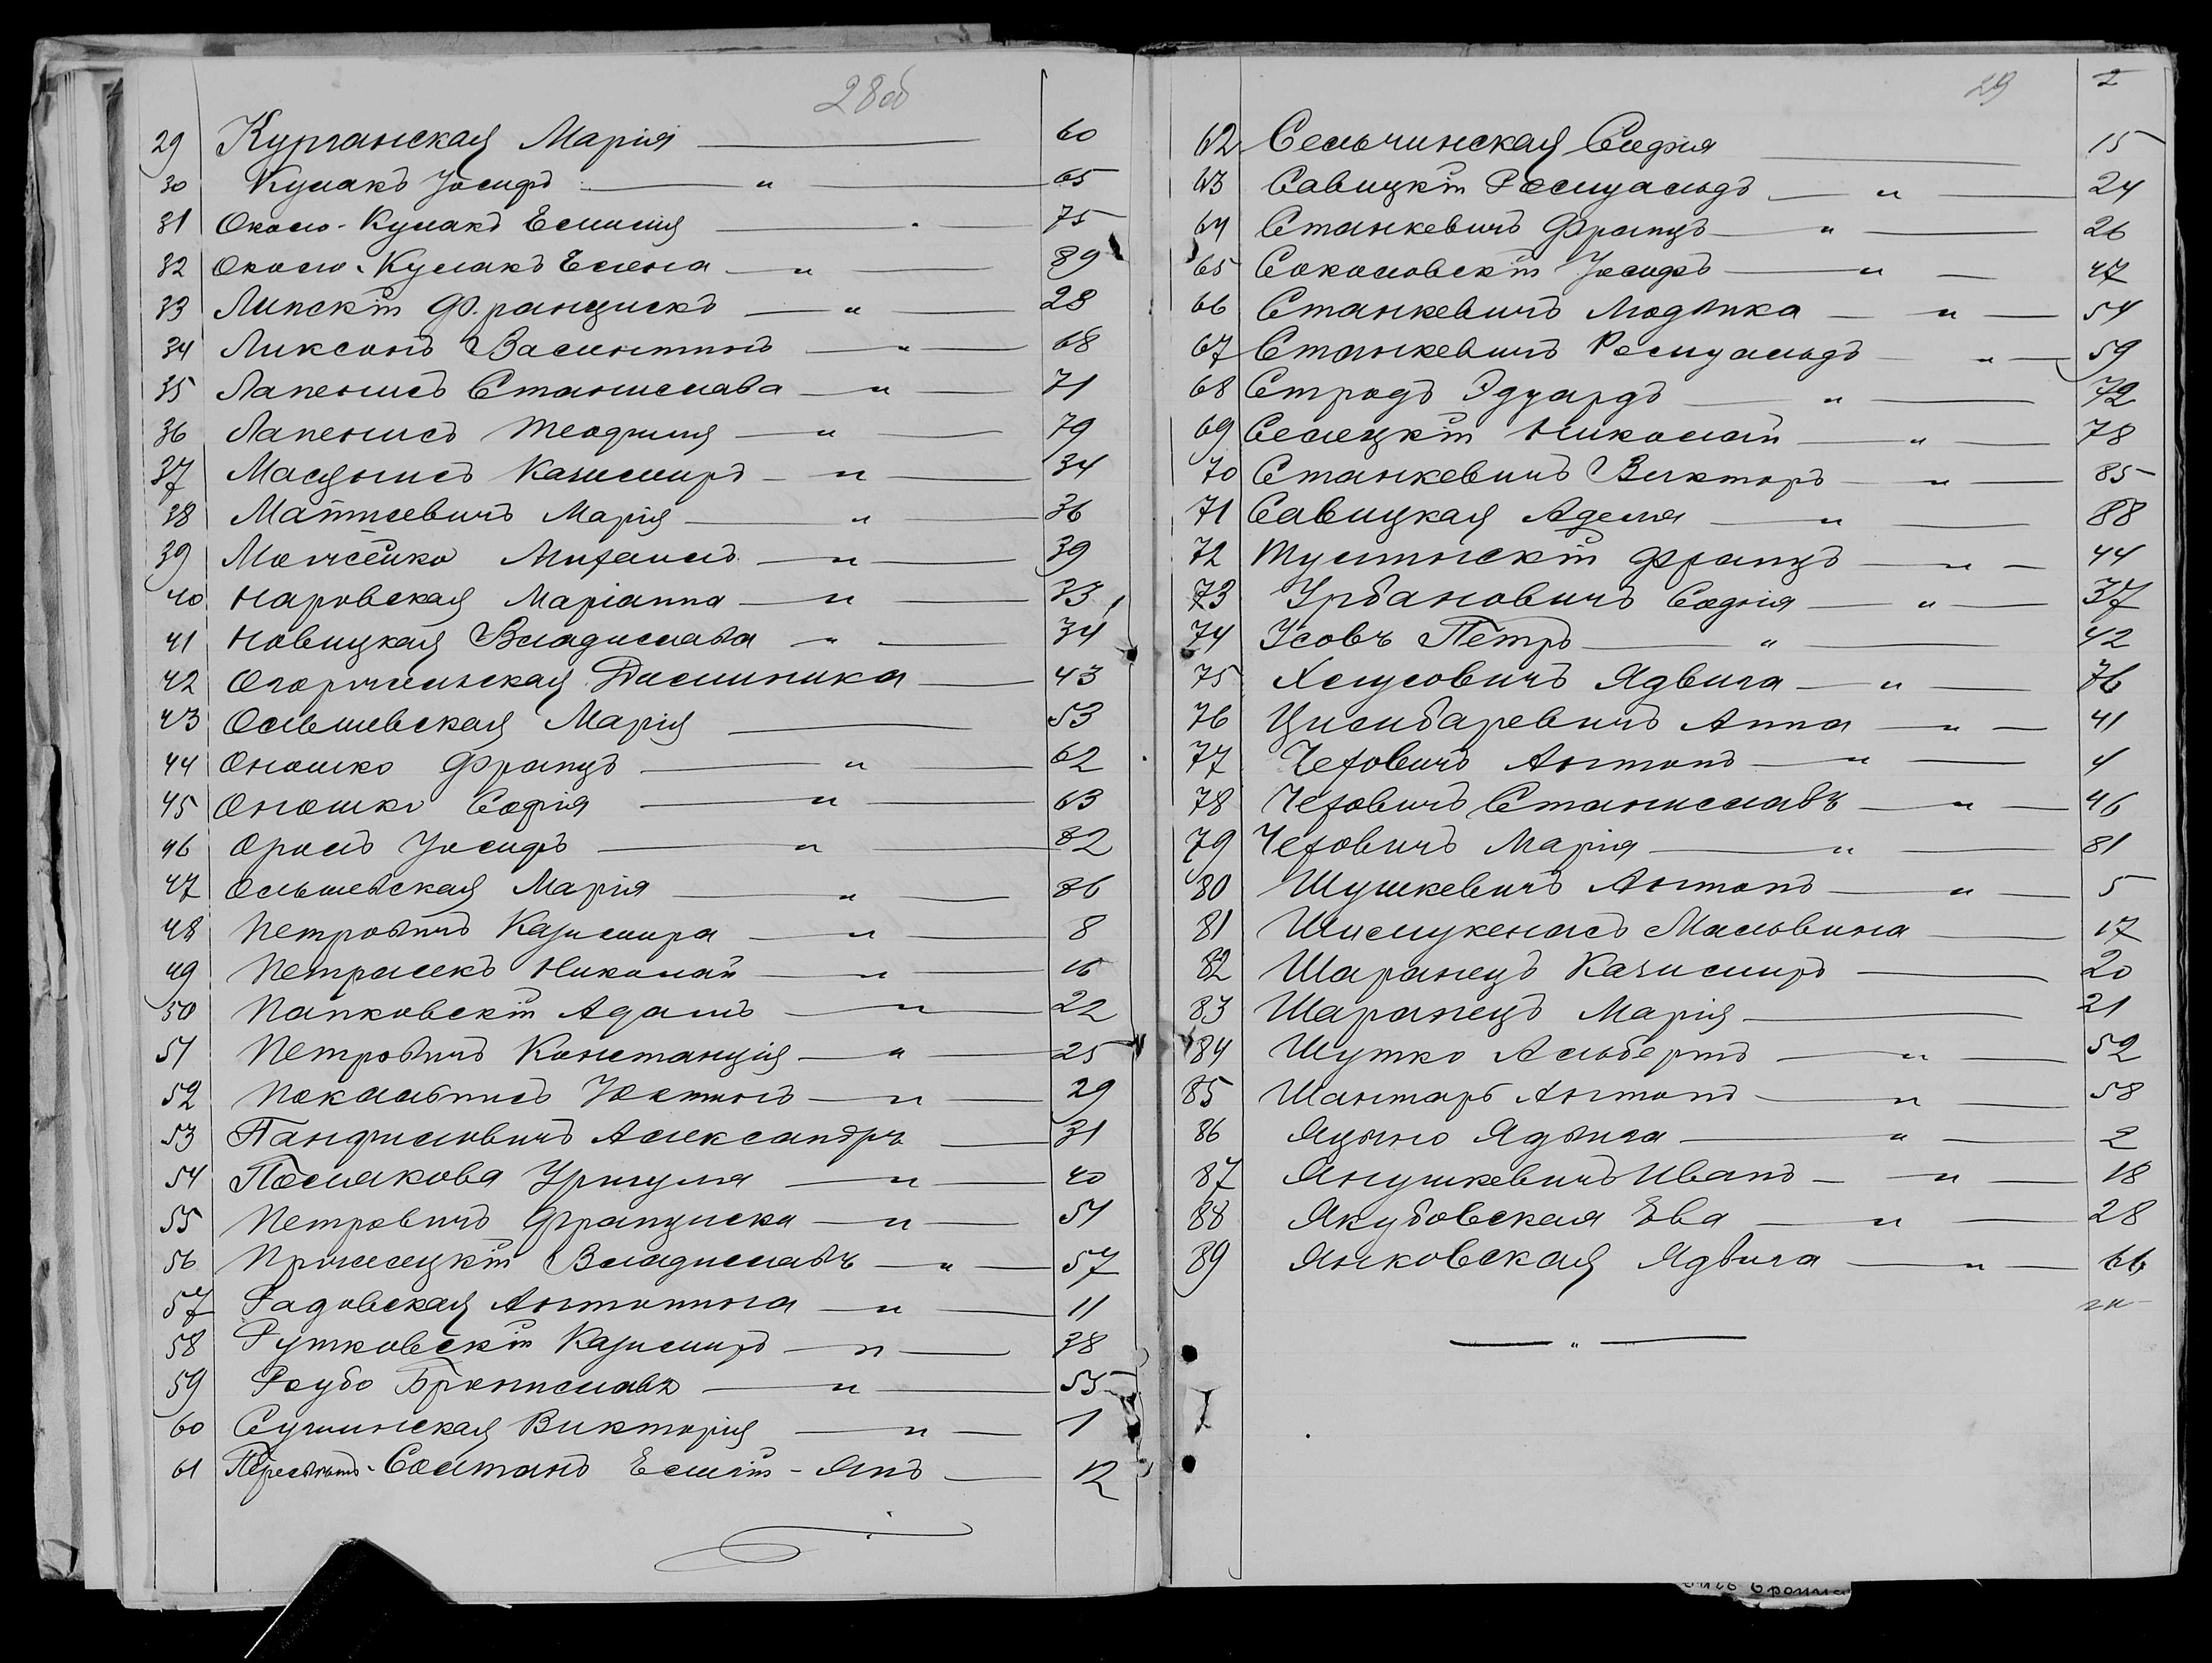 28об
29 Курганская Марія — 60
30 Кулакъ Іосифъ — " — 65
31 Около-Кулакъ Емилія — " — 75
32 Около-Кулакъ Елена — " — 89
33 Липскій Францискъ — " — 28
34 Ликсонъ Валентинъ — " — 68
35 Лапенисъ Станислава — " — 71
36 Лапенисъ Теофилія — " — 79
37 Мацулисъ Казимиръ — " — 34
38 Матусевичъ Марія — " — 36
39 Мойсейко Михаилъ — " — 39
40 Наровская Маріанна — " — 33
41 Новицкая Владислава — " — 34
42 Доминика — 43
43 Ольшевская Марія — 53
44 Оношко Францъ — " — 62
45 Оношко Софія — " — 63
46 Оролъ Іосифъ — " — 82
47 Ольшевская Марія — " — 86
48 Петровичъ Казимира — " — 8
49 Петралекъ Николай — " — 16
50 Папковскій Адамъ — " — 22
51 Петровичъ Констанція — " — 25
52 Юстинъ — " — 29
53 Панфиловичъ Александръ — 31
54 Полякова Уршуля — " — 40
55 Петровичъ Франциска — " — 51
56 Владиславъ — " — 57
57 Радовская Антонина — " — 11
58 Рутковскій Казимиръ — " — 38
59 Раубо Брониславъ — " — 55
60 Сушинская Викторія — " — 1
61 Пересвѣтъ-Солтанъ Емилій-Янъ — 12
29 2
62 Сельчинская Софія — 15
63 Савицкій Ромуальдъ — " — 24
64 Станкевичъ Францъ — " — 26
65 Соколовскій Іосифъ — " — 47
66 Станкевичъ Людвика — " — 54
67 Станкевичъ Ромуальдъ — " — 59
68 Стродъ Эдуардъ — " — 72
69 Селецкій Николай — " — 78
70 Станкевичъ Викторъ — " — 85
71 Савицкая Аделя — " — 88
72 Францъ — " — 44
73 Урбановичъ Софія — " — 37
74 Усовъ Петръ — " — 42
75 Ядвига — " — 76
76 Цимбаревичъ Анна — " — 41
77 Чеховичъ Антонъ — " — 4
78 Чеховичъ Станиславъ — " — 46
79 Чеховичъ Марія — " — 81
80 Шушкевичъ Антонъ — " — 5
81 Шимукенасъ Мальвина — 17
82 Шаранецъ Казимиръ — 20
83 Шаранецъ Марія — 21
84 Шутко Альбертъ — " — 52
85 Шантаръ Антонъ — " — 58
86 Яцыно Ядвига — " — 2
87 Янушкевичъ Иванъ — " — 18
88 Якубовская Ева — " — 28
89 Янковская Ядвига — " — 66